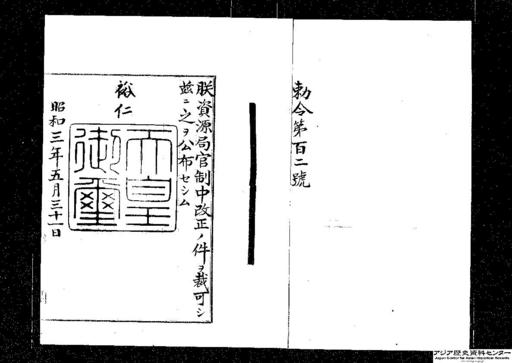 勅令第百二號
朕資源局官制中改正ノ件ヲ裁可シ
玆ニ之ヲ公布セシム
裕仁
天皇御璽
昭和三年五月三十一日
アジア歴史資料センター
Japan Center for Asian Historical Records